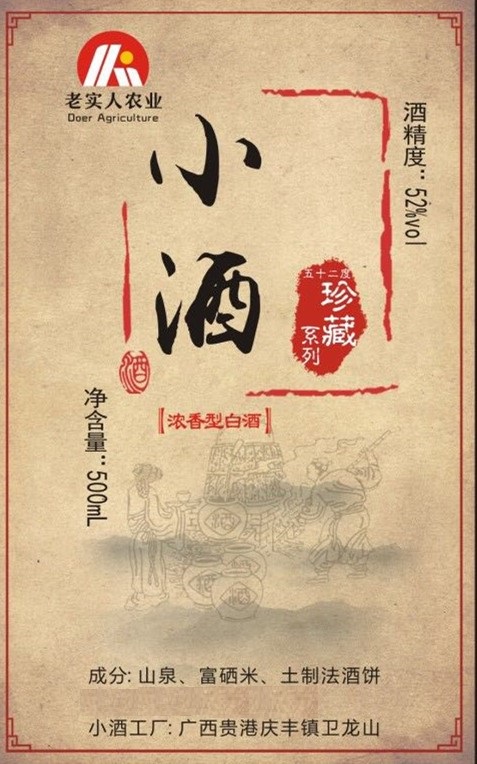 老实人农业
Doer Agriculture
小酒
酒精度：52%vol
五十二度
珍藏
系列
酒
净含量：500mL
【浓香型白酒】
酒
酒
成分: 山泉、富硒米、土制法酒饼
小酒工厂: 广西贵港庆丰镇卫龙山